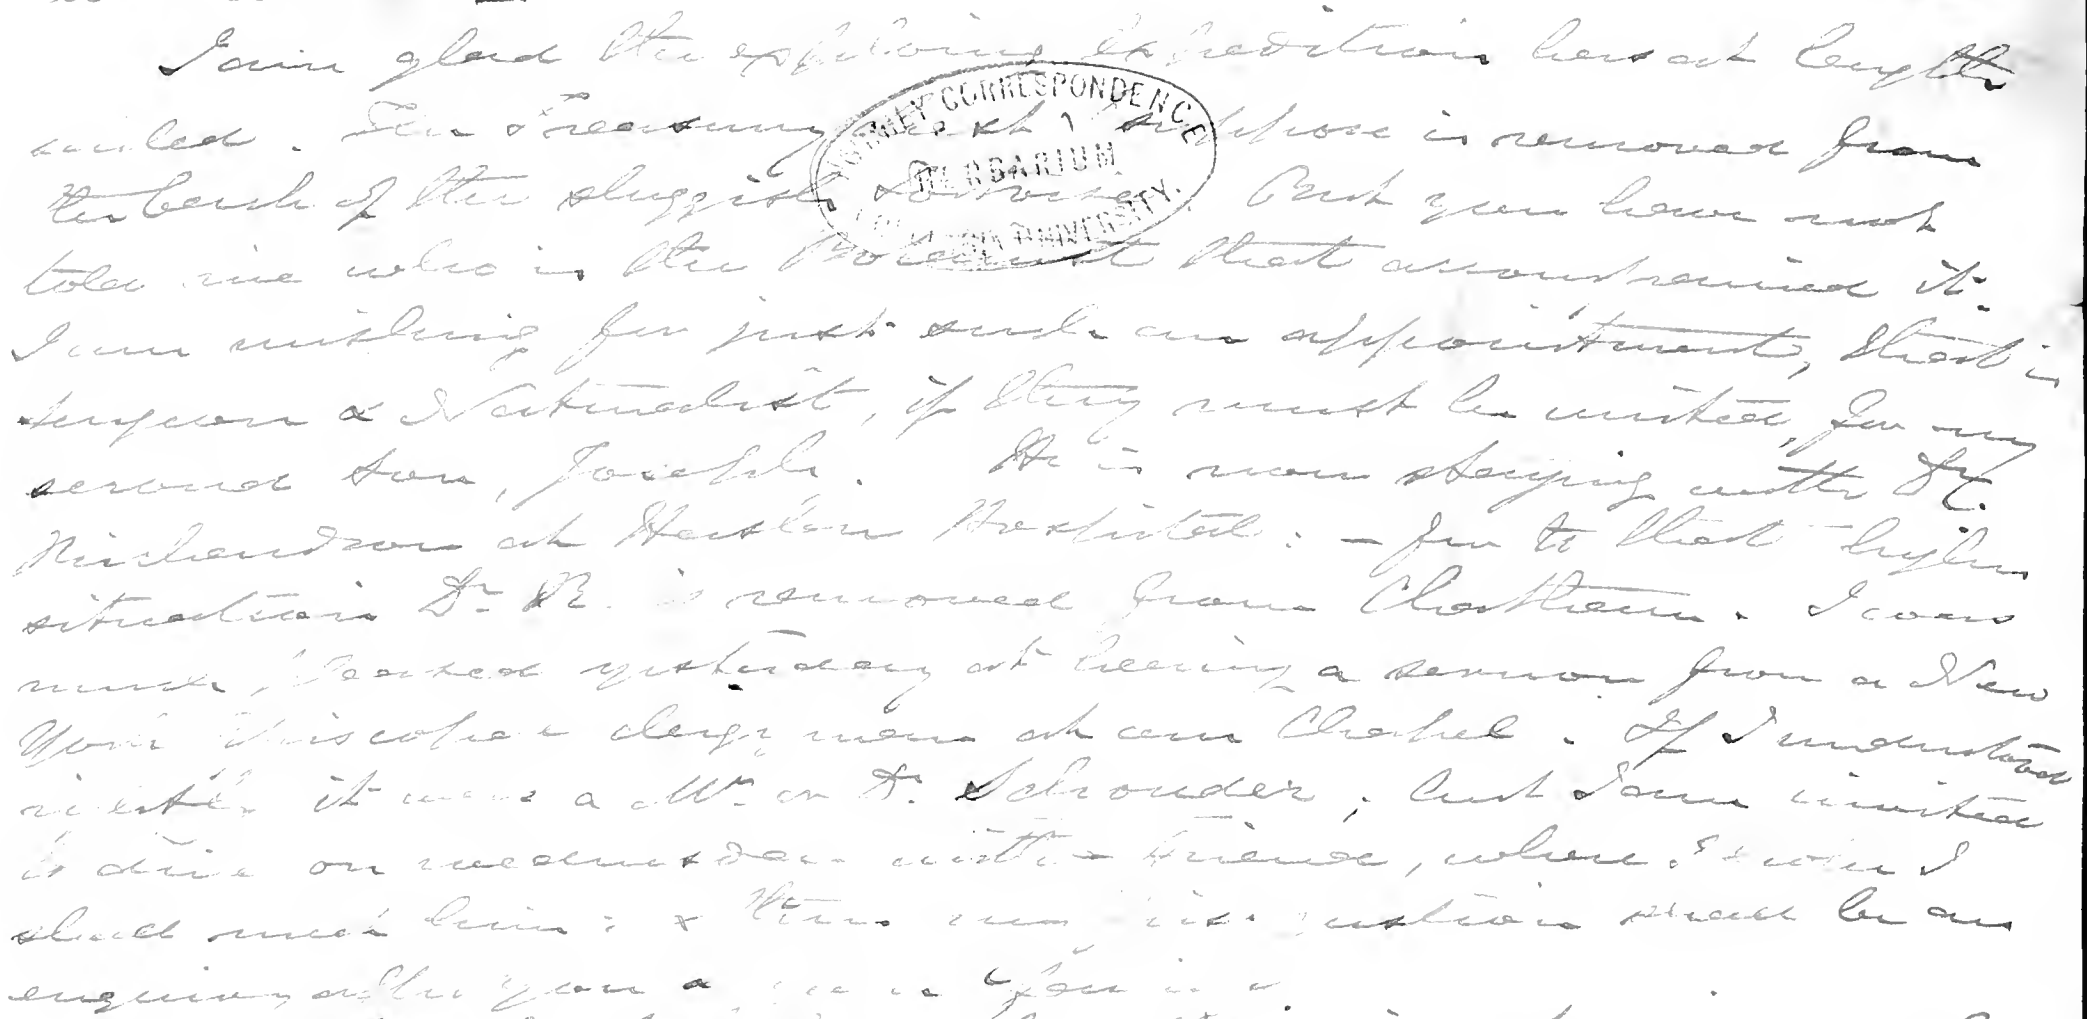 I am glad the exploring Expedition has at length
sailed. The Treasury I suppose is removed from
the bench of the sluggish. But you have not
told me who is the Botanist that accompanied it.
I am wishing for just such an appointment, that is
surgeon & Naturalist, if they must be united, for my
second son, Joseph. He is now staying with Dr.
Richardson at Haslar Hospital: - for to that higher
situation Dr. R. is removed from Chatham. I was
much pleased yesterday at hearing a sermon from a New
York Episcopal clergyman at our Chapel. If I understood
rightly it was a Mr. or Dr. Schrouder; but I am invited
to dine on wednesday with a friend, when I
shall meet him: & then my first question shall be an
enquiry after you
TORREY CORRESPONDENCE
HERBARIUM
COLUMBIA UNIVERSITY.